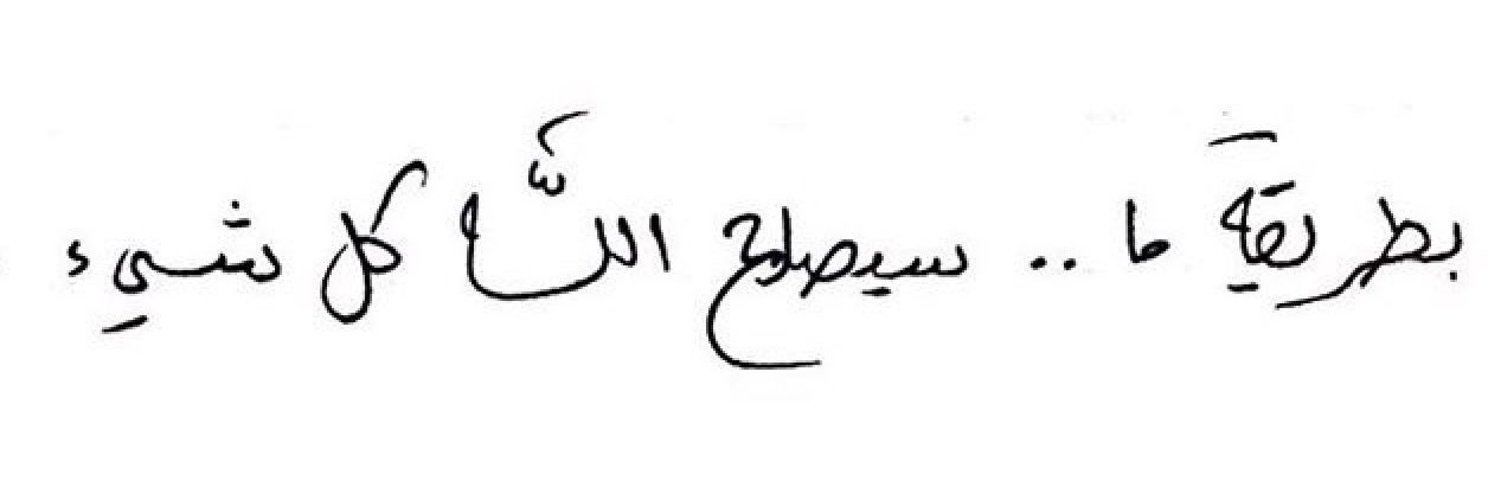 بطريقة ما .. سيصلح اللّه كل شيء